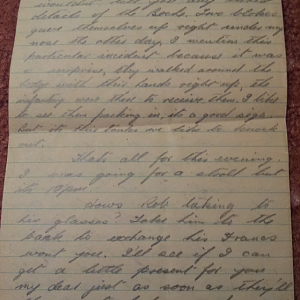 wouldn't
details of the Bochs. Two blokes
gave themselves up right
near the other day, I mention this
particular incident because it was
a surprise, they walked around the
with their hands right up, the
infantry were there to receive them. I like
to see them packing in, its a good sign.
But its the tanks we like to knock
out.
Thats all for this evening.
I was going for a stroll but
its 10 pm.
Hows Rob taking to
his glasses? Take him to the
bank to exchange his Francs
wont you. I'll see if I can
get a little present for you
my dear just as soon as they'll